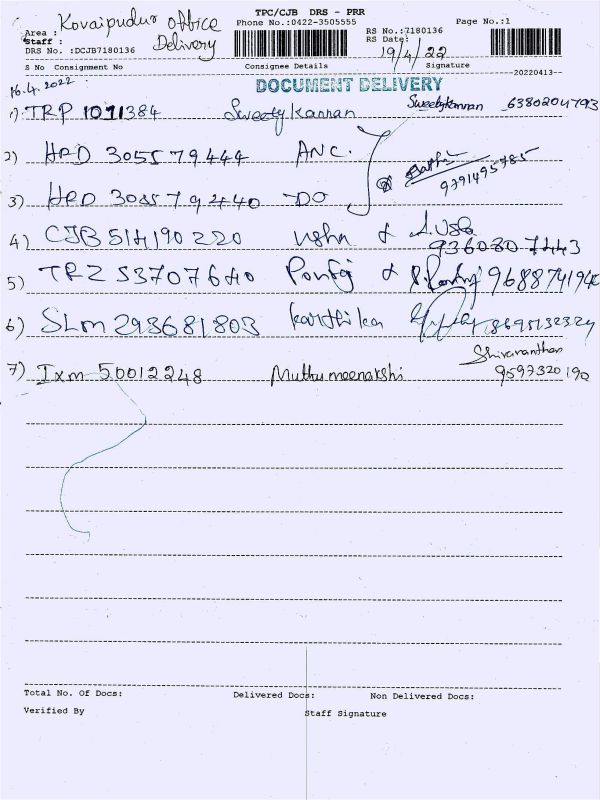 TPC/CJB DRS - PRR
Area : Kovaipudur office
Phone No.:0422-3505555
RS No.:7180136
Page No.:1
Staff : Delivery
RS Date: 19/4/22
DRS No. :DCJB7180136
S No Consignment No Consignee Details Signature
20220413
16.4.2022
DOCUMENT DELIVERY
1) TRP 1011384 Sweety Kannan Sweety Kannan 6380204793
2) HRD 305579444 ANC.
9791495785
3) HRD 305579440 DO
4) CJB 514190220 usha & A. Usha
9360807443
5) TRZ 53707640
6) SLM 293681803 Karthika
7) Ixm 50012248 Muthu meenakshi Shivananthan
9597320190
Total No. Of Docs: Delivered Docs: Non Delivered Docs:
Verified By Staff Signature